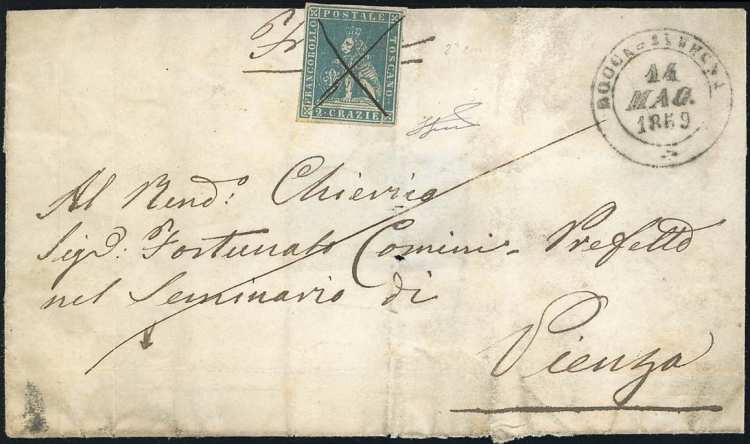 FRANCOBOLLO POSTALE TOSCANO
2 CRAZIE
14
MAG.
1859
Al Rend.º Chierico
Sigr. Fortunato Comini Prefetto
nel Seminario di
Pienza